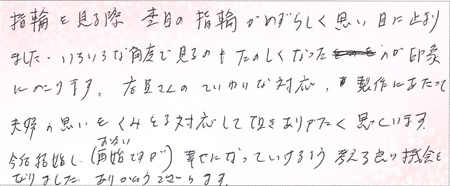 指輪を見る際 杢目の指輪がめずらしく思い 目に止まり
ました。いろいろな角度で見るのも たのしくなったのが印象
にのこります。店員さんのていねいな対応、製作にあたって
夫婦の思いをくみとる対応して頂きありがたく思っています。
今回結婚し、(お互い再婚ですが) 幸せになっていけるよう 考える良い機会と
なりました。ありがとうございます。